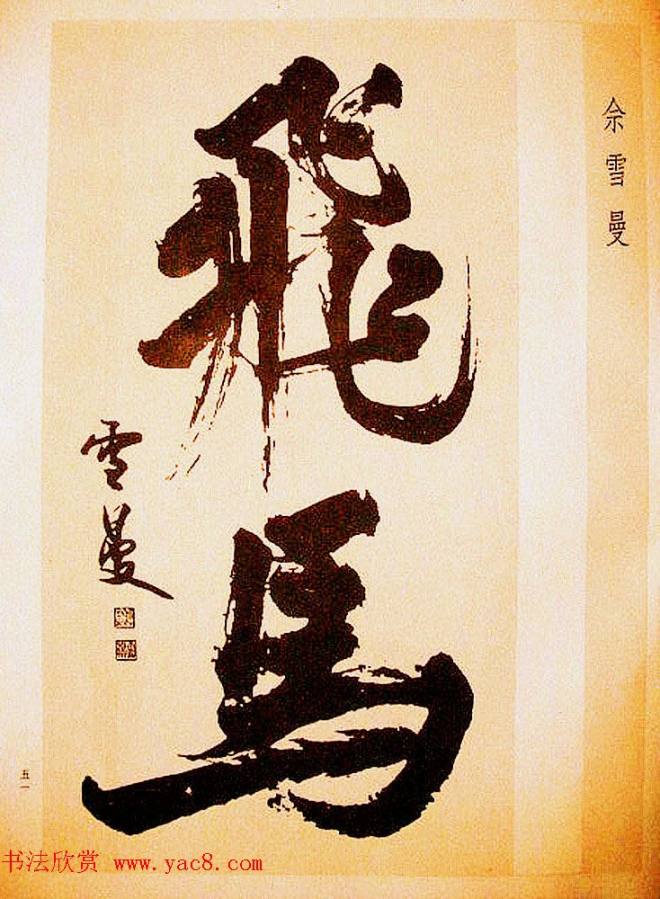 佘雪曼
飛馬
雪曼
五一
书法欣赏 www.yac8.com